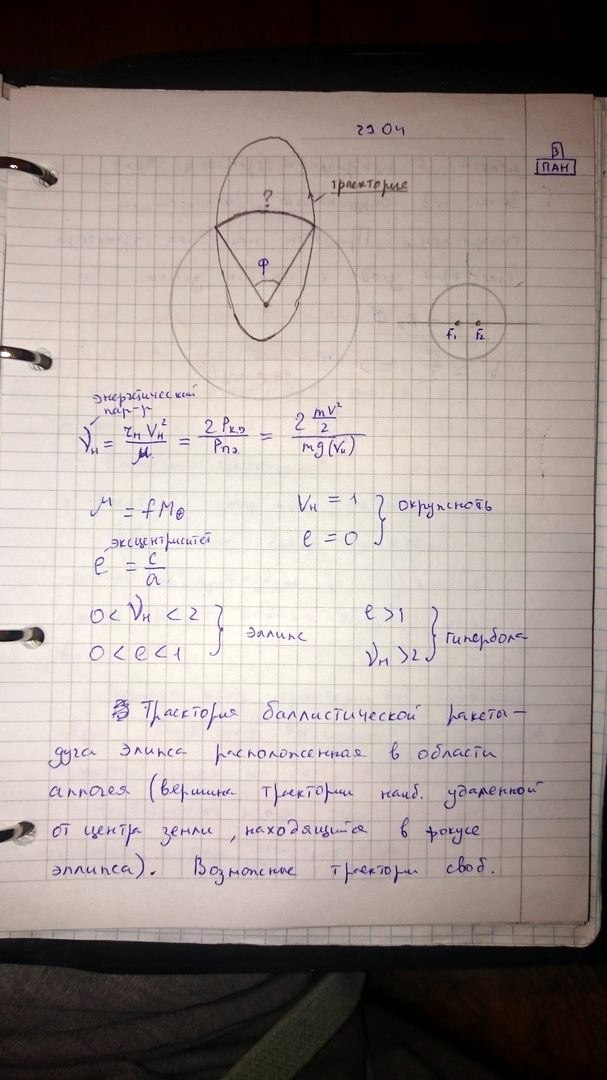 29 04
В
ПАН
?
траектория
φ
F₁ F₂
энергетический
пар-р
νн = rн Vн² / μ = 2 Pк.э / Pп.э = 2 mV²/2 / mg(rн)
μ = fM⊕
νн = 1
e = 0 } окружность
эксцентриситет
e = c/a
0 < νн < 2
0 < e < 1 } эллипс
e > 1
νн > 2 } гипербола
Траектория баллистической ракеты –
дуга элипса расположенная в области
аппогея (вершина траектории наиб. удаленной
от центра земли, находящийся в фокусе
эллипса). Возможные траектории своб.